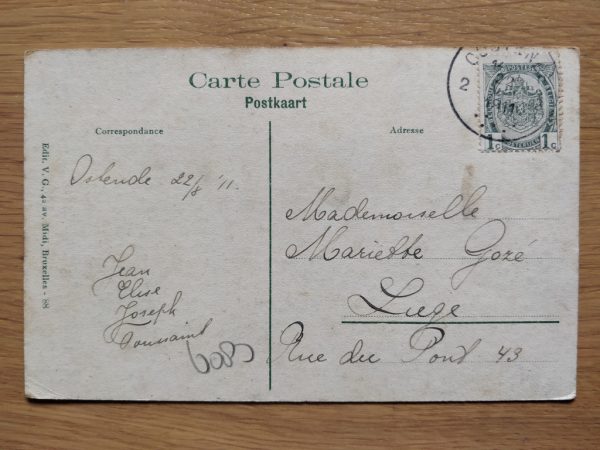 Carte Postale
Postkaart
Correspondance
Adresse
Ostende 22/8 '11.
Jean
Elise
Joseph
Toussaint
6085
Mademoiselle
Mariette Gozé
Liege
Rue du Pont 43
Edit. V. G., 42 av. Midi, Bruxelles - 88
2
1c
1c